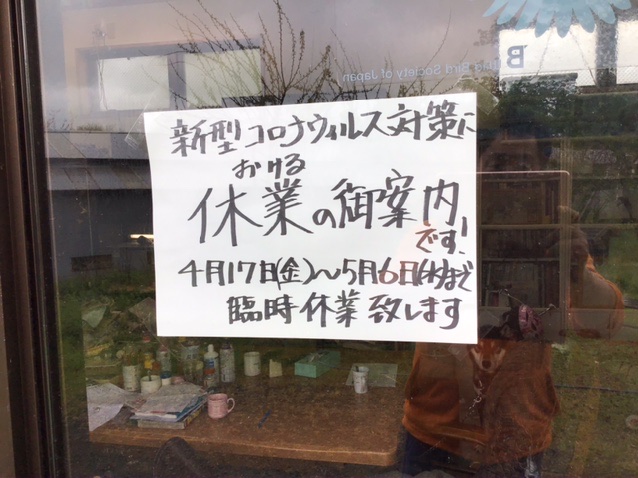 Wild Bird Society of Japan
新型コロナウィルス対策に
おける
休業の御案内
です!
4月17日(金)〜5月6日(水)まで
臨時休業致します